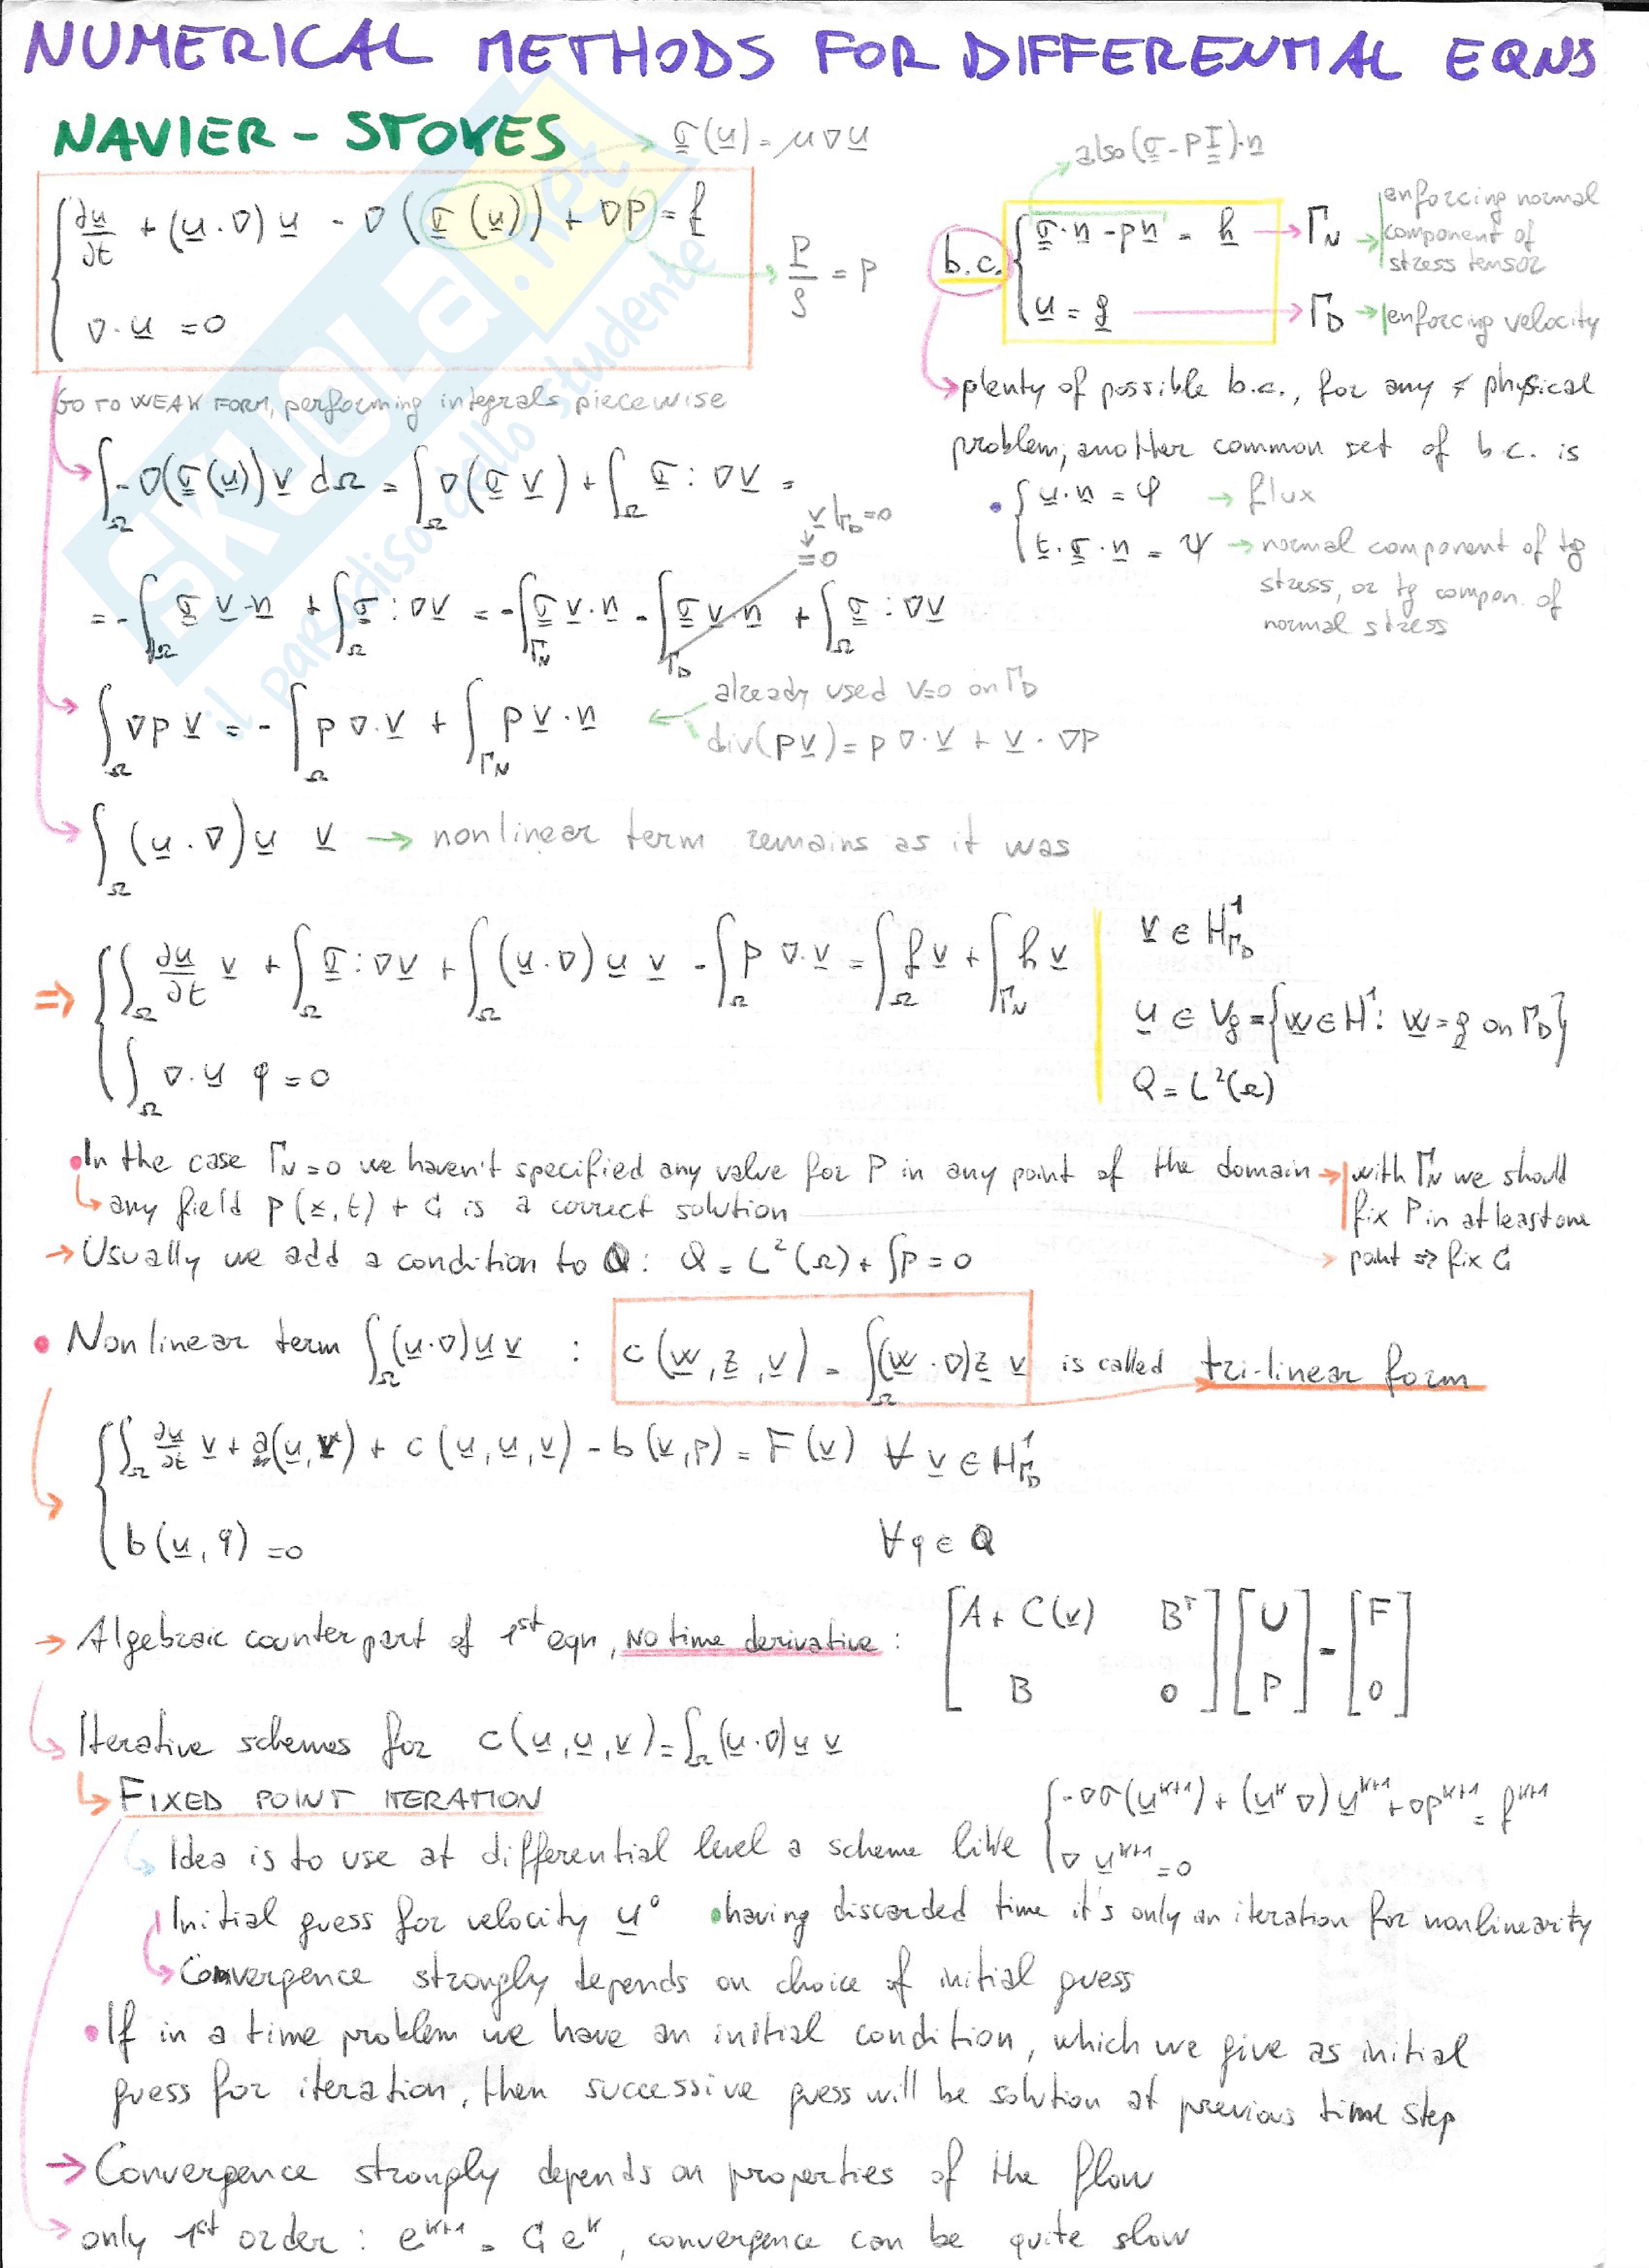 NUMERICAL METHODS FOR DIFFERENTIAL EQNS
NAVIER - STOKES → σ(u) = μ∇u
also (σ - pI)·n
{ ∂u/∂t + (u·∇)u - ∇(σ(u)) + ∇p = f
∇·u = 0
P/ρ = p
b.c. { σ·n - pn = h → ΓN → enforcing normal component of stress tensor
u = g → ΓD → enforcing velocity
plenty of possible b.c., for any ≠ physical
problem; another common set of b.c. is
• { u·n = φ → flux
t·σ·n = ψ → normal component of tg
stress, or tg compon. of
normal stress
GO TO WEAK FORM, performing integrals piecewise
∫Ω -∇(σ(u))v dΩ = ∫Ω ∇(σ v) + ∫Ω σ : ∇v =
v|ΓD = 0
↓
= 0
= -∫∂Ω σ v·n + ∫Ω σ : ∇v = -∫ΓN σ v·n - ∫ΓD σ v·n + ∫Ω σ : ∇v
∫Ω ∇p v = -∫Ω p ∇·v + ∫ΓN p v·n ← already used v=0 on ΓD
div(pv) = p ∇·v + v·∇p
∫Ω (u·∇)u v → nonlinear term remains as it was
⇒ { ∫Ω ∂u/∂t v + ∫Ω σ : ∇v + ∫Ω (u·∇)u v - ∫Ω p ∇·v = ∫Ω f v + ∫ΓN h v
∫Ω ∇·u q = 0
v ∈ H¹ΓD
u ∈ Vg = {w ∈ H¹ : w = g on ΓD}
Q = L²(Ω)
• In the case ΓN = 0 we haven't specified any value for P in any point of the domain → with ΓN we should
↳ any field p(x,t) + C is a correct solution
fix P in at least one
point ⇒ fix C
→ Usually we add a condition to Q : Q = L²(Ω) + ∫p = 0
• Nonlinear term ∫Ω (u·∇)u v : c(w, z, v) = ∫Ω (w·∇)z v is called tri-linear form
{ ∫Ω ∂u/∂t v + a(u,v) + c(u,u,v) - b(v,p) = F(v) ∀ v ∈ H¹ΓD
b(u,q) = 0 ∀ q ∈ Q
→ Algebraic counterpart of 1st eqn, NO time derivative : [A + C(v) Bᵀ] [U] = [F]
[B 0] [P] [0]
↳ Iterative schemes for c(u,u,v) = ∫Ω (u·∇)u v
↳ FIXED POINT ITERATION
Idea is to use at differential level a scheme like { -∇σ(uᵏ⁺¹) + (uᵏ ∇)uᵏ⁺¹ + ∇pᵏ⁺¹ = fᵏ⁺¹
∇ uᵏ⁺¹ = 0
Initial guess for velocity u⁰ • having discarded time it's only an iteration for nonlinearity
↳ Convergence strongly depends on choice of initial guess
• If in a time problem we have an initial condition, which we give as initial
guess for iteration, then successive guess will be solution at previous time step
→ Convergence strongly depends on properties of the flow
→ only 1st order : eᵏ⁺¹ = C eᵏ, convergence can be quite slow
SKUOLA.net
il paradiso dello studente